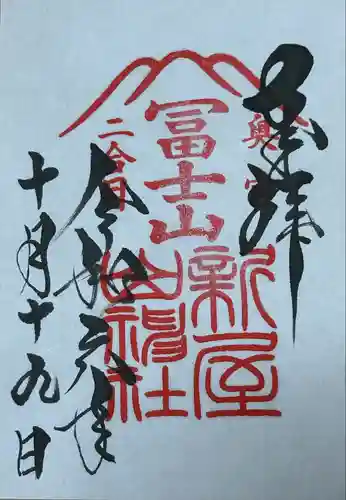 奉拝
奥宮
冨士山
二合目
新屋
山神社
令和元年
十月十九日